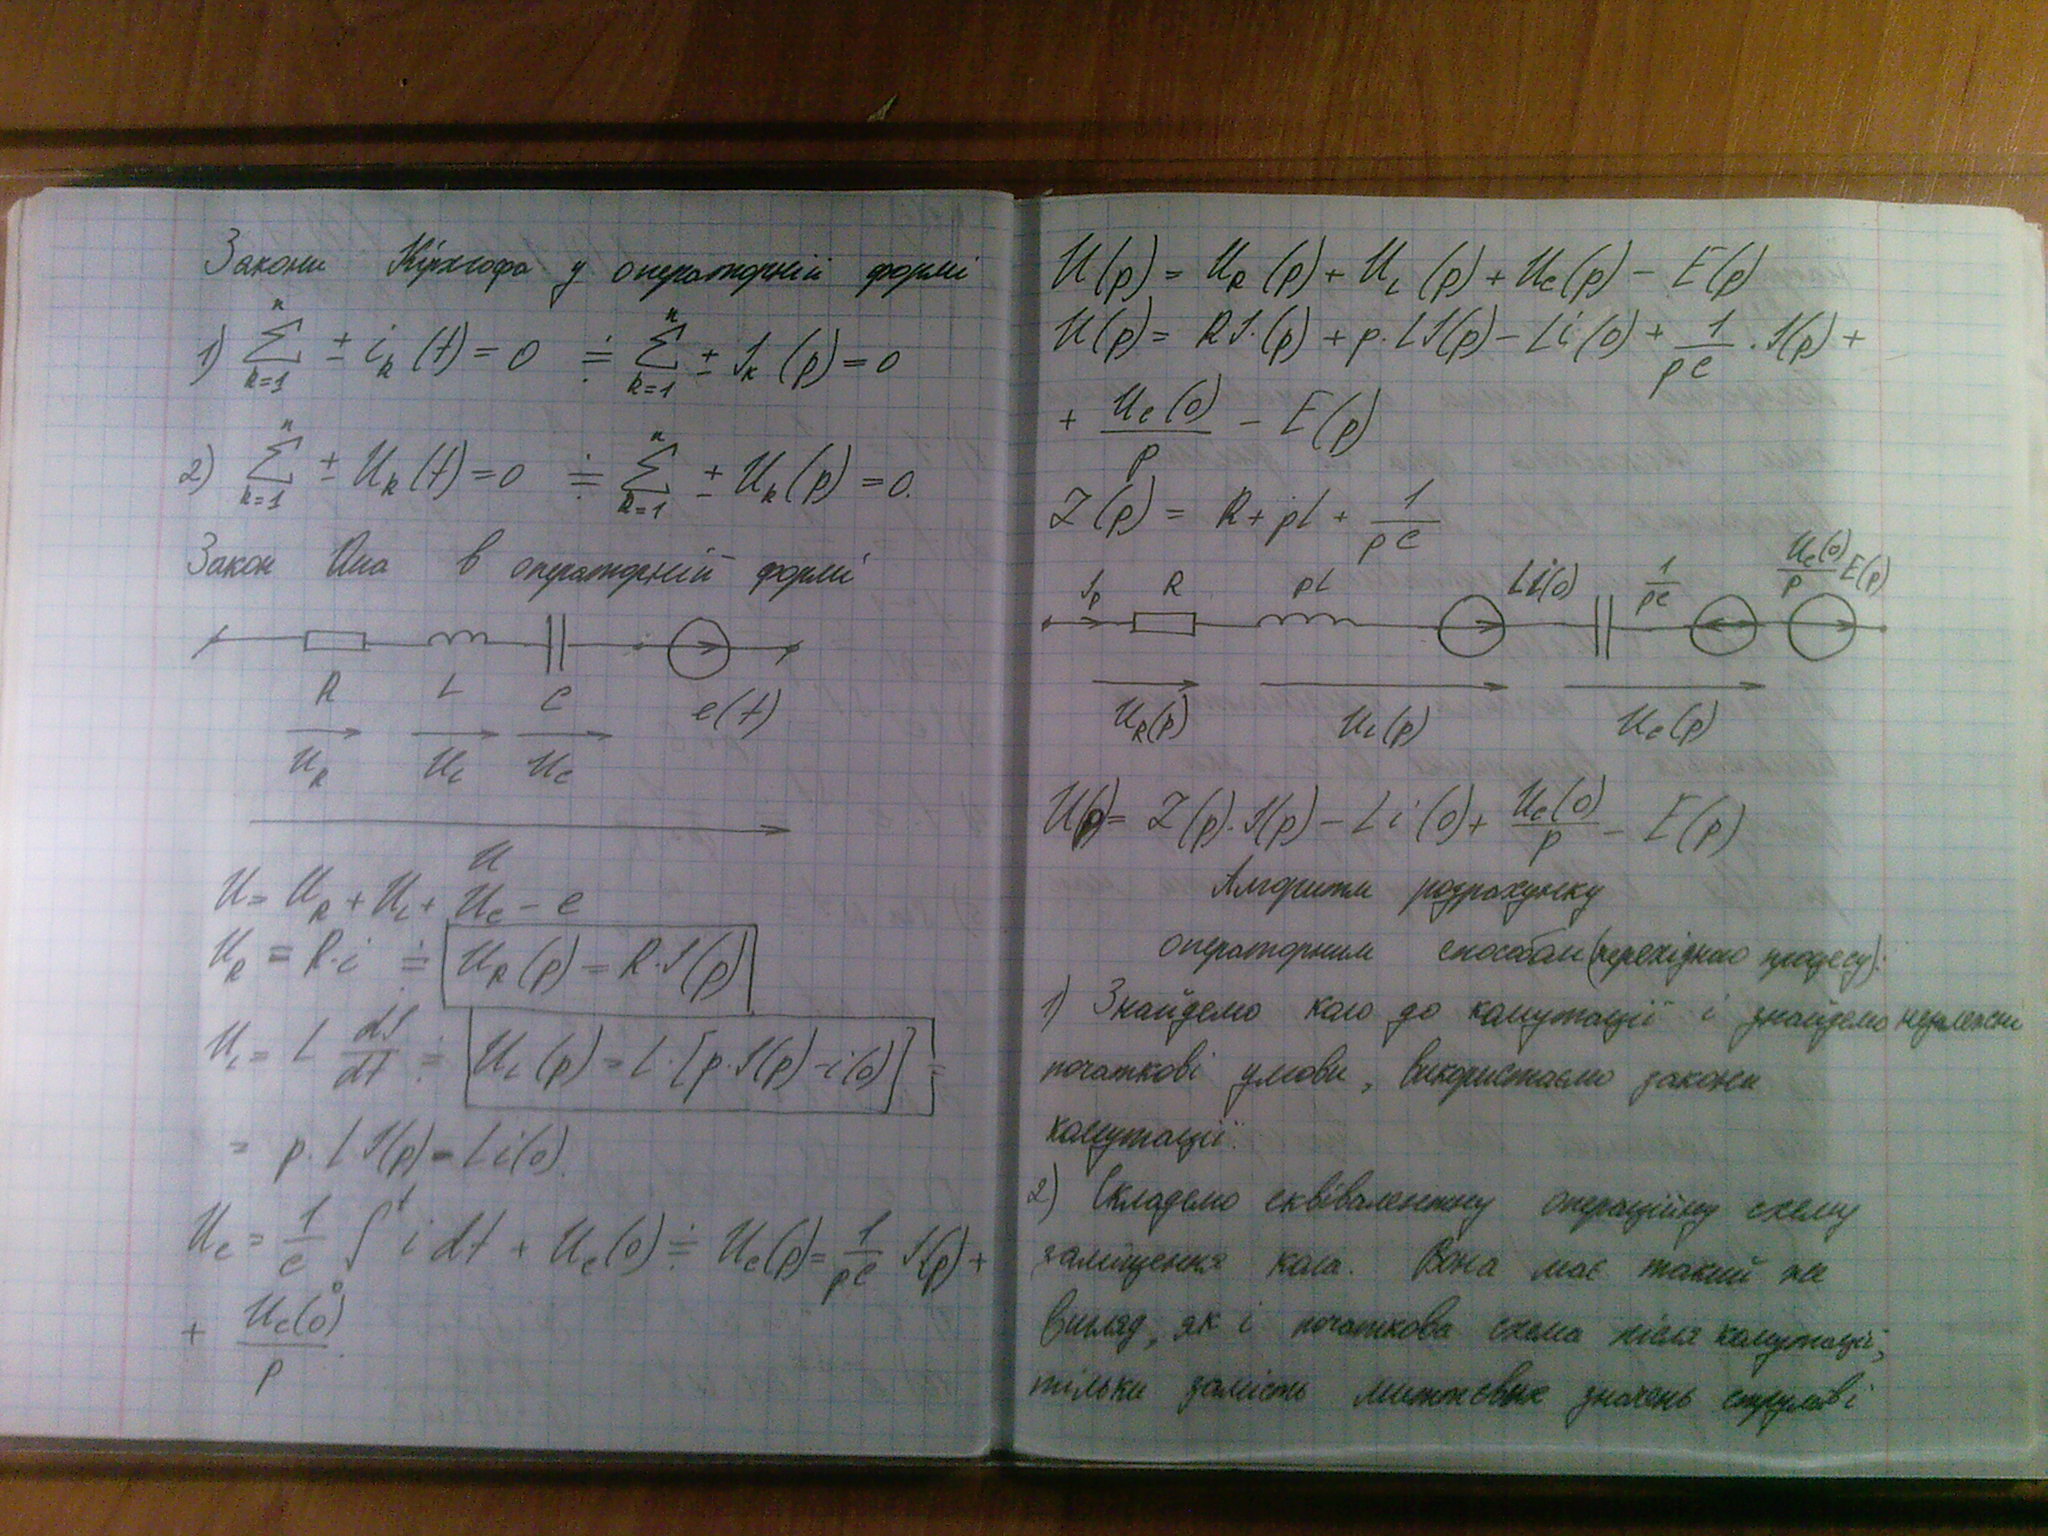 Закони Кірхгофа у операторній формі
1) n ∑ k=1 ± i_k (t) = 0 ≑ n ∑ k=1 ± I_k (p) = 0
2) n ∑ k=1 ± U_k (t) = 0 ≑ n ∑ k=1 ± U_k (p) = 0.
Закон Ома в операторній формі
R L C e(t)
U_R U_L U_C
U
U = U_R + U_L + U_C - e
U_R = R·i ≑ U_R (p) = R·I(p)
U_L = L dI/dt ≑ U_L (p) = L·[p·I(p) - i(0)] =
= p·L I(p) - Li(0).
U_C = 1/C ∫_0^t i dt + U_C (0) ≑ U_C(p) = 1/pC I(p) +
+ U_C(0)/p
U(p) = U_R (p) + U_L (p) + U_C(p) - E(p)
U(p) = R I·(p) + p·L I(p) - Li(0) + 1/pC · I(p) +
+ U_C(0)/p - E(p)
Z(p) = R + pL + 1/pC
I_p R pL Li(0) 1/pC U_C(0)/p E(p)
U_R(p) U_L(p) U_C(p)
U(p) = Z(p)·I(p) - Li(0) + U_C(0)/p - E(p)
Алгоритм розрахунку
операторним способом (перехідного процесу):
1) Знайдемо коло до комутації і знайдемо незалежні
початкові умови, використаємо закони
комутації.
2) Складемо еквівалентну операційну схему
заміщення кола. Вона має такий же
вигляд, як і початкова схема після комутації,
тільки замість миттєвих значень струмів і